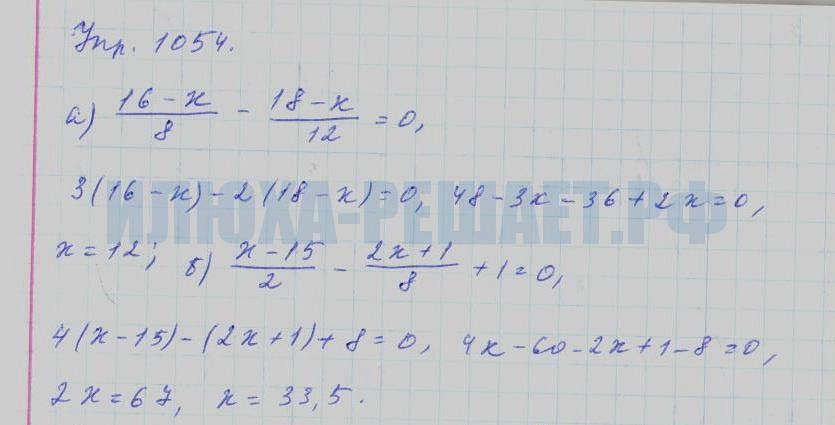 Упр. 1054.
а) (16-x)/8 - (18-x)/12 = 0,
3(16-x)-2(18-x)=0, 48-3x-36+2x=0,
ИЛЮХА-РЕШАЕТ.РФ
x=12; б) (x-15)/2 - (2x+1)/8 +1=0,
4(x-15)-(2x+1)+8=0, 4x-60-2x+1-8=0,
2x=67, x=33,5.